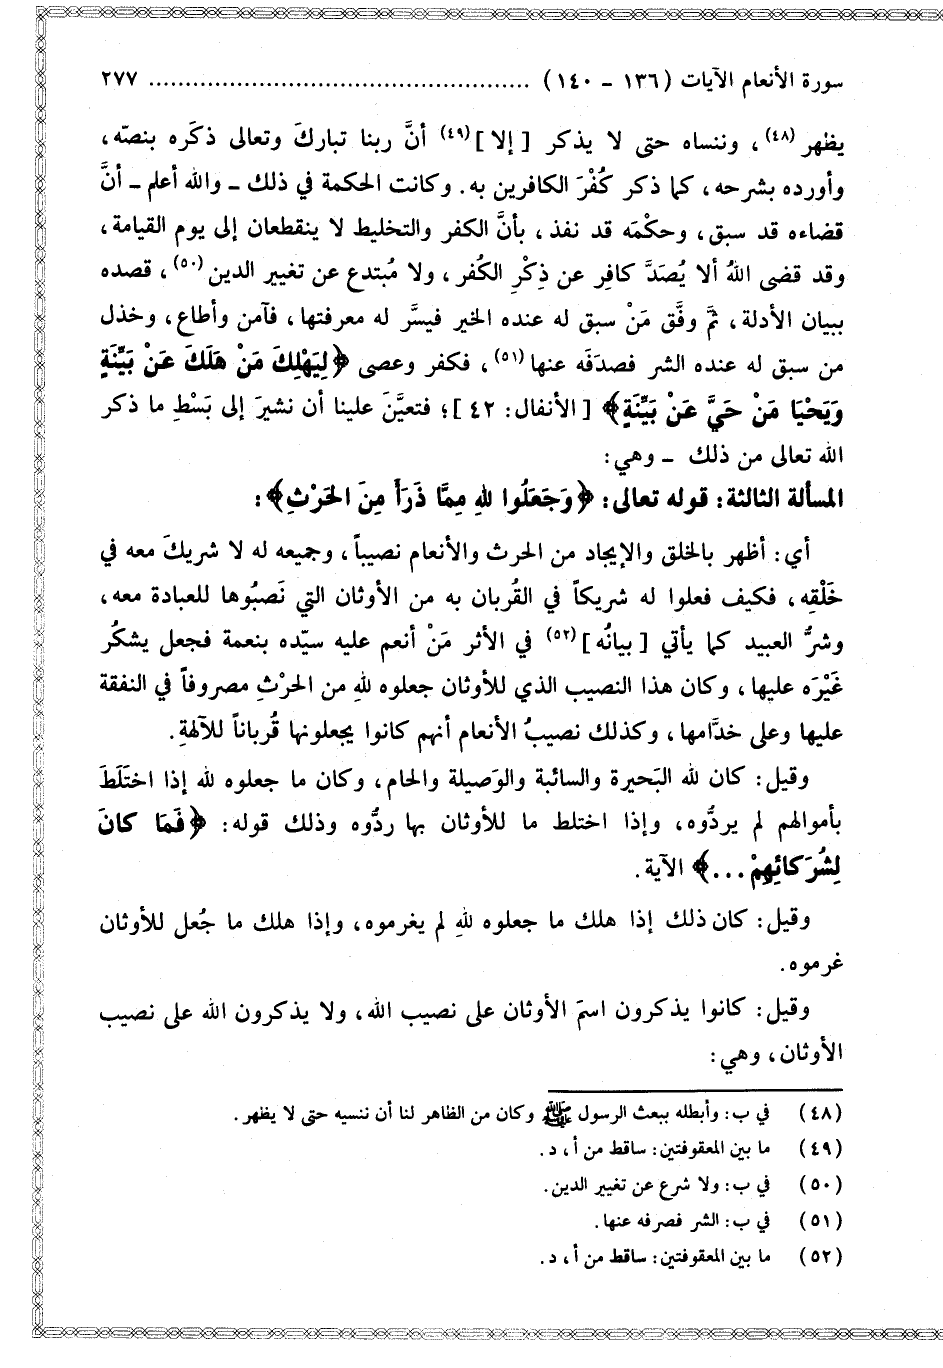 سورة الأنعام الآيات ( ١٣٦ ـ ١٤٠ ) ................................................... ٢٧٧
يظهر(٤٨)، وننساه حتى لا يذكر [ إلا ](٤٩) أنَّ ربنا تباركَ وتعالى ذكَره بنصّه،
وأورده بشرحه، كما ذكر كُفْرَ الكافرين به. وكانت الحكمة في ذلك ـ والله أعلم ـ أنَّ
قضاءه قد سبق، وحكمَه قد نفذ، بأنَّ الكفر والتخليط لا ينقطعان إلى يوم القيامة،
وقد قضى اللهُ ألا يُصَدَّ كافِر عن ذِكْرِ الكُفر، ولا مُبتدع عن تغيير الدين(٥٠)، قصده
ببيان الأدلة، ثمَّ وفَّق مَنْ سبق له عنده الخير فيسَّر له معرفتها، فآمن وأطاع، وخذل
من سبق له عنده الشر فصدَفَه عنها(٥١)، فكفر وعصى ﴿لِيَهْلِكَ مَنْ هَلَكَ عَنْ بَيِّنَةٍ
وَيَحْيَا مَنْ حَيَّ عَنْ بَيِّنَةٍ﴾ [ الأنفال: ٤٢ ]؛ فتعيَّنَ علينا أن نشيرَ إلى بَسْطِ ما ذكر
الله تعالى من ذلك ـ وهي:
المسألة الثالثة: قوله تعالى: ﴿وَجَعَلُوا للهِ مِمَّا ذَرَأَ مِنَ الحَرْثِ﴾:
أي: أظهر بالخلق والإيجاد من الحرث والأنعام نصيباً، وجميعه له لا شريكَ معه في
خَلْقِه، فكيف فعلوا له شريكاً في القُربان به من الأوثان التي نَصَبُوها للعبادة معه،
وشرُّ العبيد كما يأتي [ بيانُه ](٥٢) في الأثر مَنْ أنعم عليه سيّده بنعمة فجعل يشكُر
غَيْرَه عليها، وكان هذا النصيب الذي للأوثان جعلوه للهِ من الحرْثِ مصروفاً في النفقة
عليها وعلى خدَّامها، وكذلك نصيبُ الأنعام أنهم كانوا يجعلونها قُرباناً للآلهةِ.
وقيل: كان لله البَحيرة والسائبة والوَصيلة والحام، وكان ما جعلوه لله إذا اختَلَطَ
بأموالهم لم يردُّوه، وإذا اختلط ما للأوثان بها ردُّوه وذلك قوله: ﴿فَمَا كانَ
لِشُرَكائِهِمْ...﴾ الآية.
وقيل: كان ذلك إذا هلك ما جعلوه للهِ لم يغرموه، وإذا هلك ما جُعل للأوثان
غرموه.
وقيل: كانوا يذكرون اسمَ الأوثان على نصيب الله، ولا يذكرون الله على نصيب
الأوثان، وهي:
(٤٨) في ب: وأبطله ببعث الرسول ﷺ وكان من الظاهر لنا أن ننسيه حتى لا يظهر.
(٤٩) ما بين المعقوفتين: ساقط من أ، د.
(٥٠) في ب: ولا شرع عن تغيير الدين.
(٥١) في ب: الشر فصرفه عنها.
(٥٢) ما بين المعقوفتين: ساقط من أ، د.